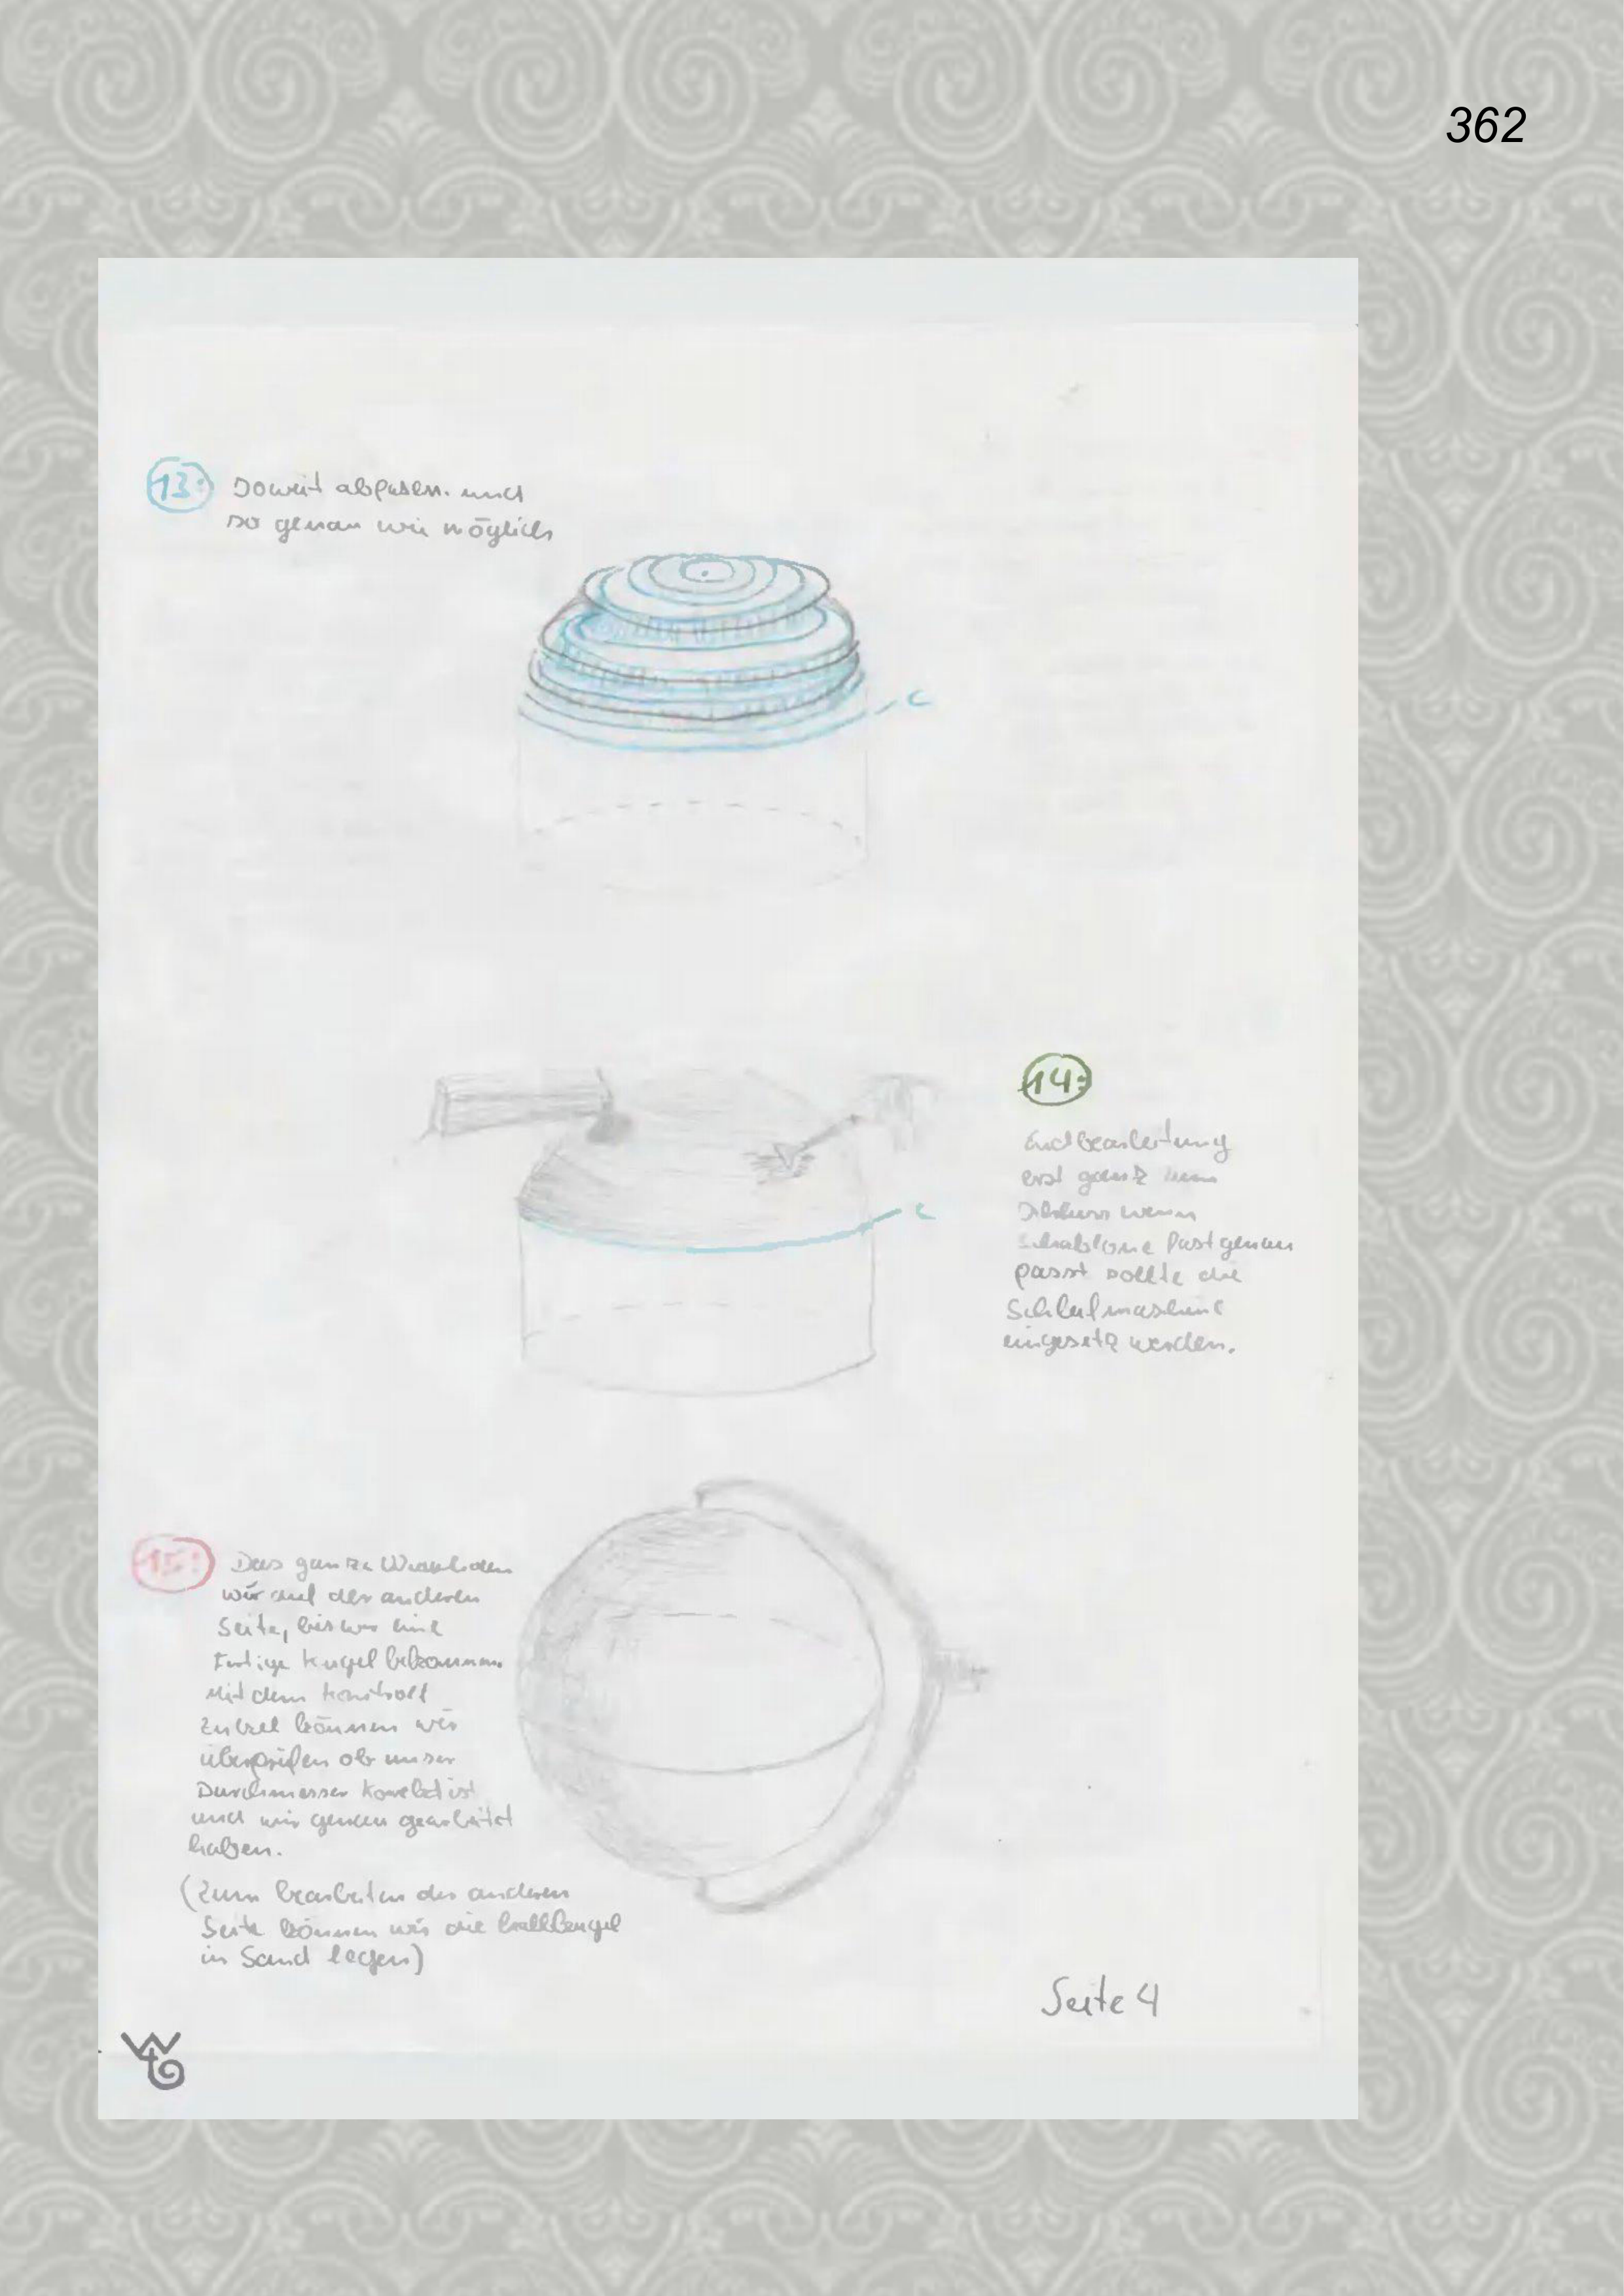 362
13: Soweit abfasen. und
so genau wie möglich
c
14:
Endbearbeitung
erst ganz zum
wenn
Schablone fast genau
passt sollte die
Schleifmaschine
eingesetz werden.
c
15: Das ganze
wir auf der anderen
Seite, bis wir eine
fertige Kugel bekommen.
Mit dem Kontroll
Zirkel können wir
überprüfen ob unser
Durchmesser Korrekt ist
und wir genau gearbeitet
haben.
(Zum bearbeiten der anderen
Seite können wir die Halbkugel
in Sand legen)
Seite 4